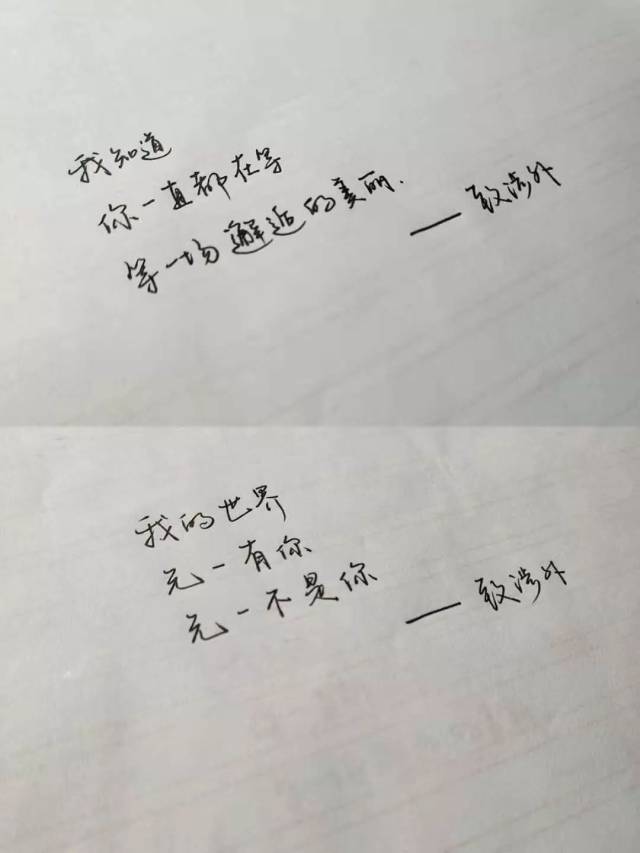 我知道
你一直都在等
等一场邂逅的美丽.
——致涉外
我的世界
无一有你
无一不是你
——致涉外